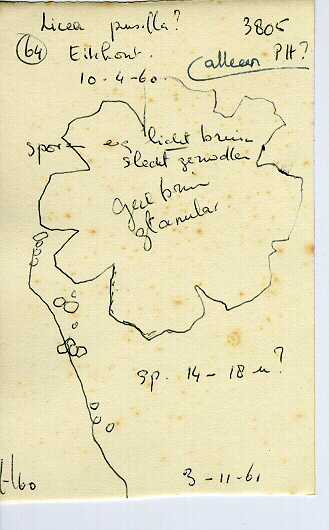 Licea pusilla? 3805
64 Eikhout.
10-4-60.
alleen PH?
sporen licht bruin
slecht
Geel bruin
granular
sp. 14-18 u?
3-11-61